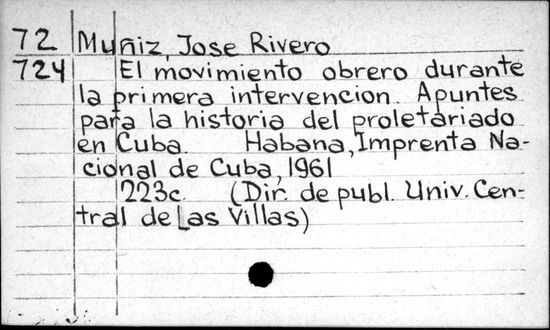 72 Muñiz, Jose Rivero
724 El movimiento obrero durante
la primera intervencion. Apuntes
para la historia del proletariado
en Cuba. Habana, Imprenta Na-
cional de Cuba, 1961
223c. (Dir. de publ. Univ. Cen-
tral de Las Villas)